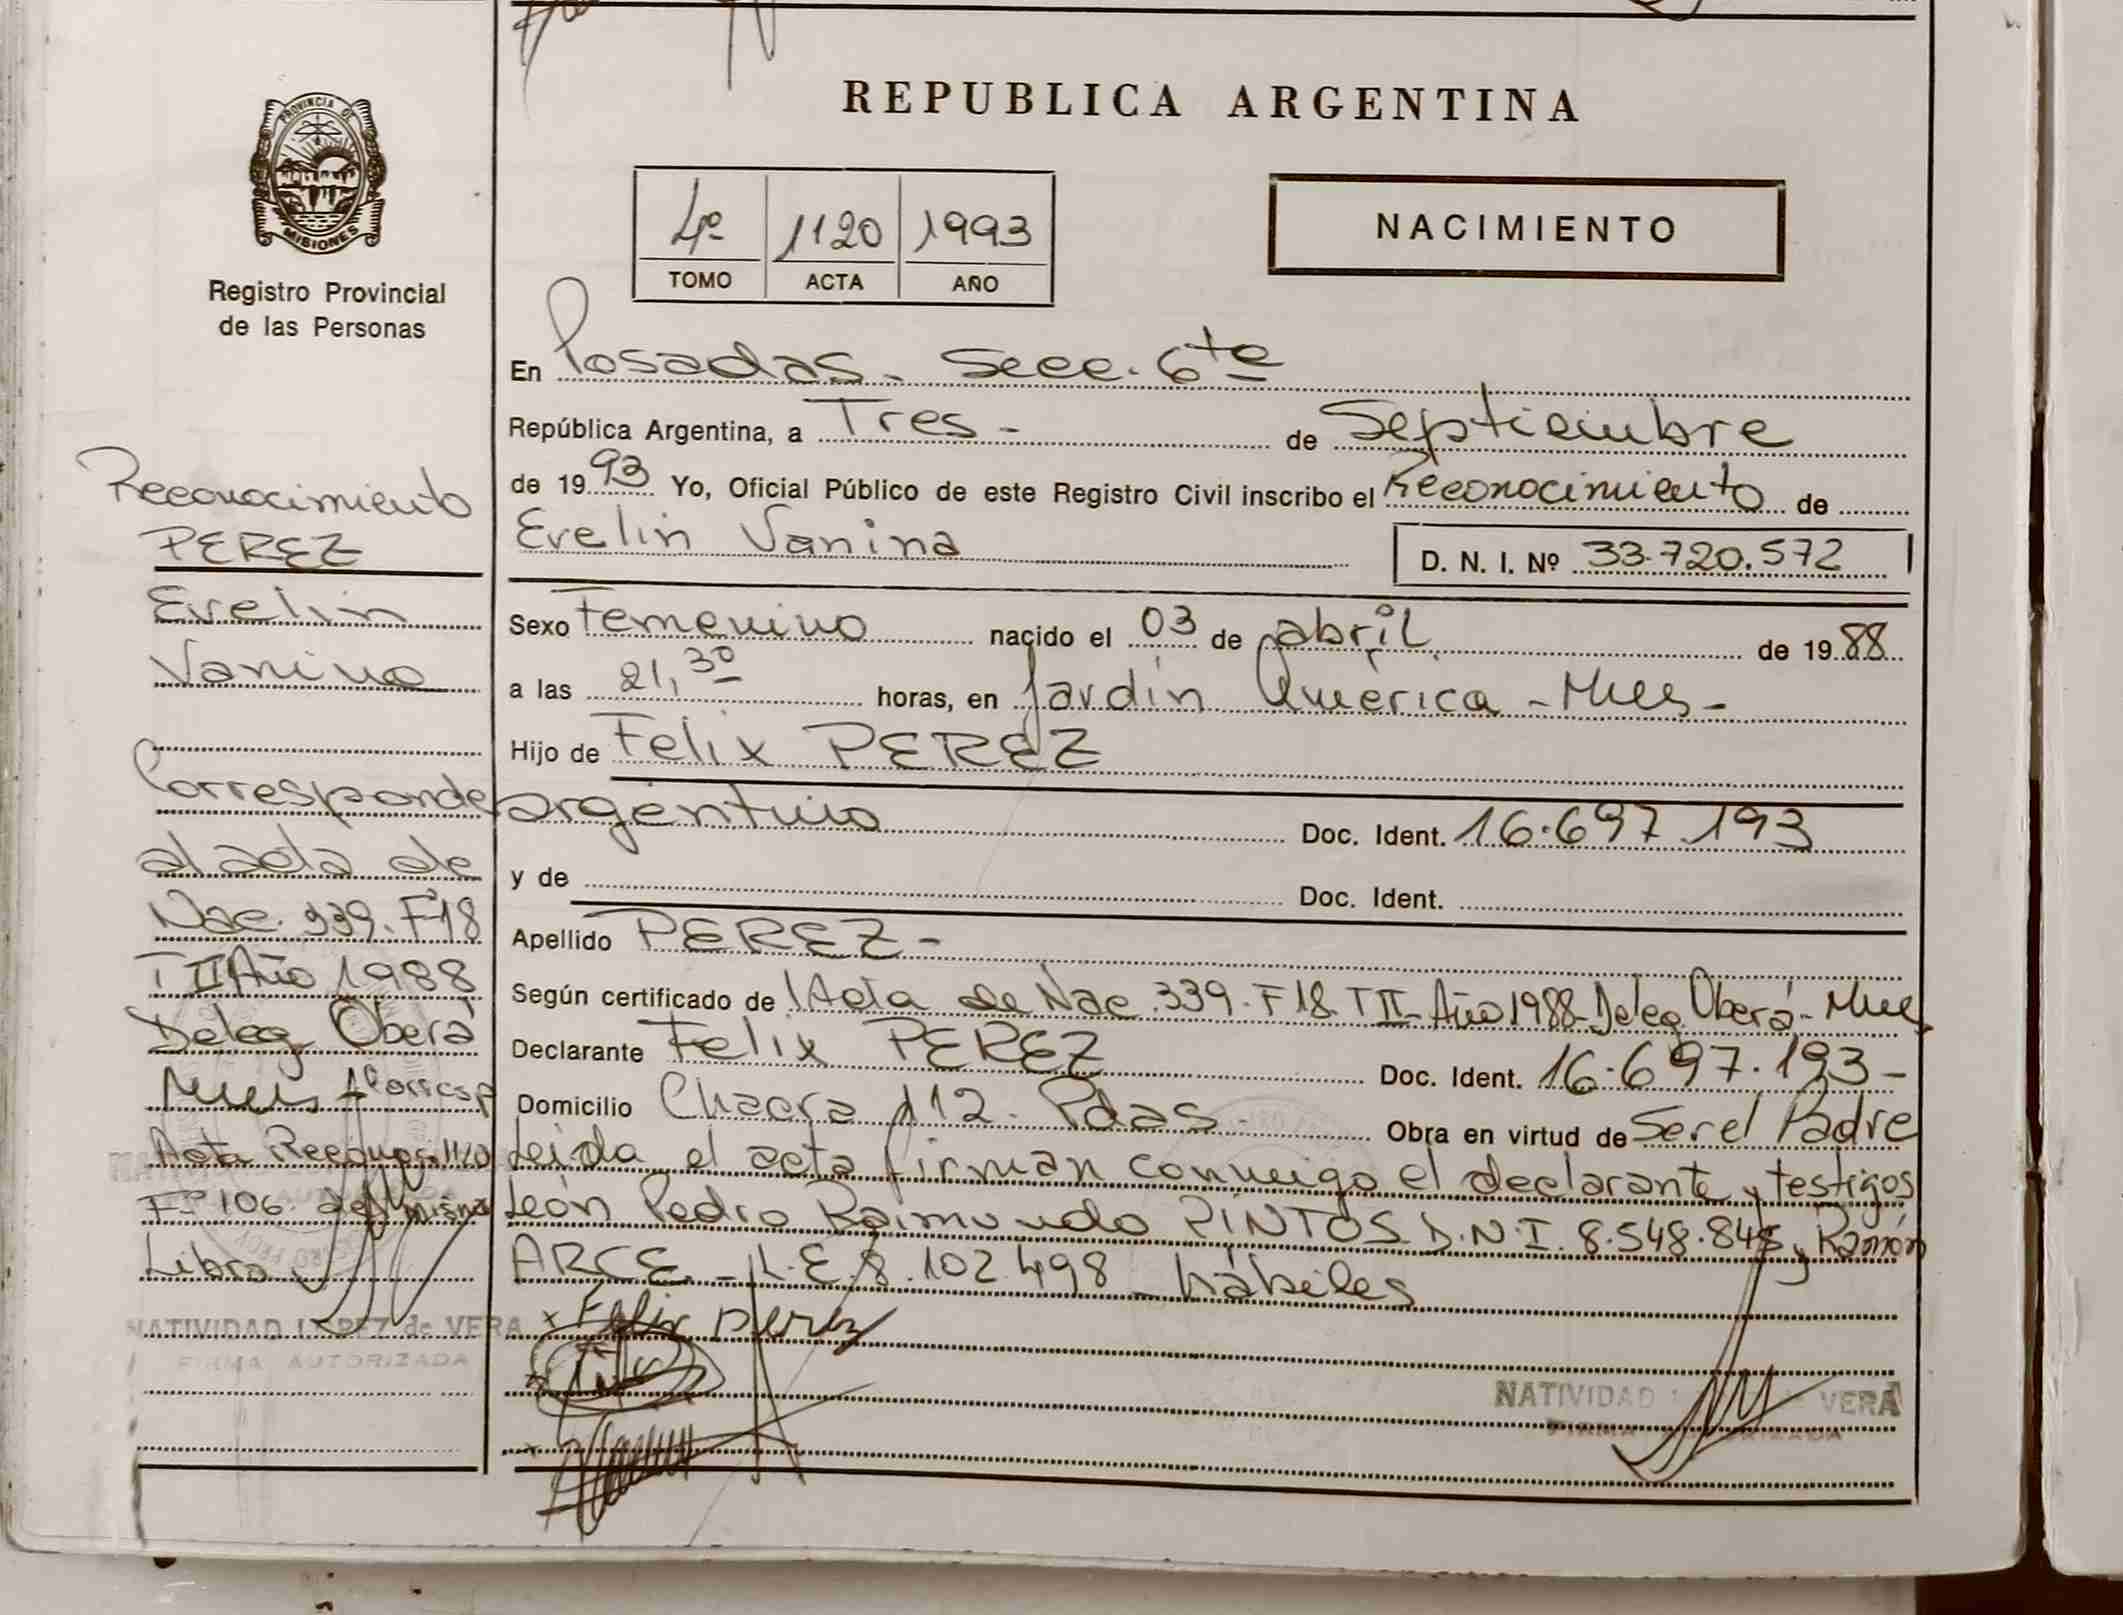 REPUBLICA ARGENTINA
PROVINCIA DE
MISIONES
Registro Provincial
de las Personas
4º 1120 1993
TOMO ACTA AÑO
NACIMIENTO
En Posadas. Secc. 6ta
República Argentina, a Tres - de Septiembre
de 1993 Yo, Oficial Público de este Registro Civil inscribo el Reconocimiento de
Evelin Vanina D. N. I. Nº 33.720.572
Sexo Femenino nacido el 03 de abril de 1988
a las 21,30 horas, en Jardín América - Mnes -
Hijo de Felix PEREZ
argentino Doc. Ident. 16.697.193
y de Doc. Ident.
Apellido PEREZ -
Según certificado de Acta de Nac. 339. F 18 T II - Año 1988 - Deleg. Oberá - Mnes
Declarante Felix PEREZ Doc. Ident. 16.697.193 -
Domicilio Chacra 112. Pdas - Obra en virtud de Ser el Padre
Leida el acta firman conmigo el declarante y testigos
León Pedro Raimundo PINTOS D.N.I. 8.548.845 y Ramón
ARCE - L.E. 8.102.498 - hábiles
x Felix perez
NATIVIDAD VERA
FIRMA
Reconocimiento
PEREZ
Evelin
Vanina
Corresponde
al acta de
Nac. 339. Fº18
T II Año 1988
Deleg Oberá
Mnes Corresp
Acta Reconoc. 1120
Fº 106 del mismo
Libro
NATIVIDAD LOPEZ de VERA
FIRMA AUTORIZADA